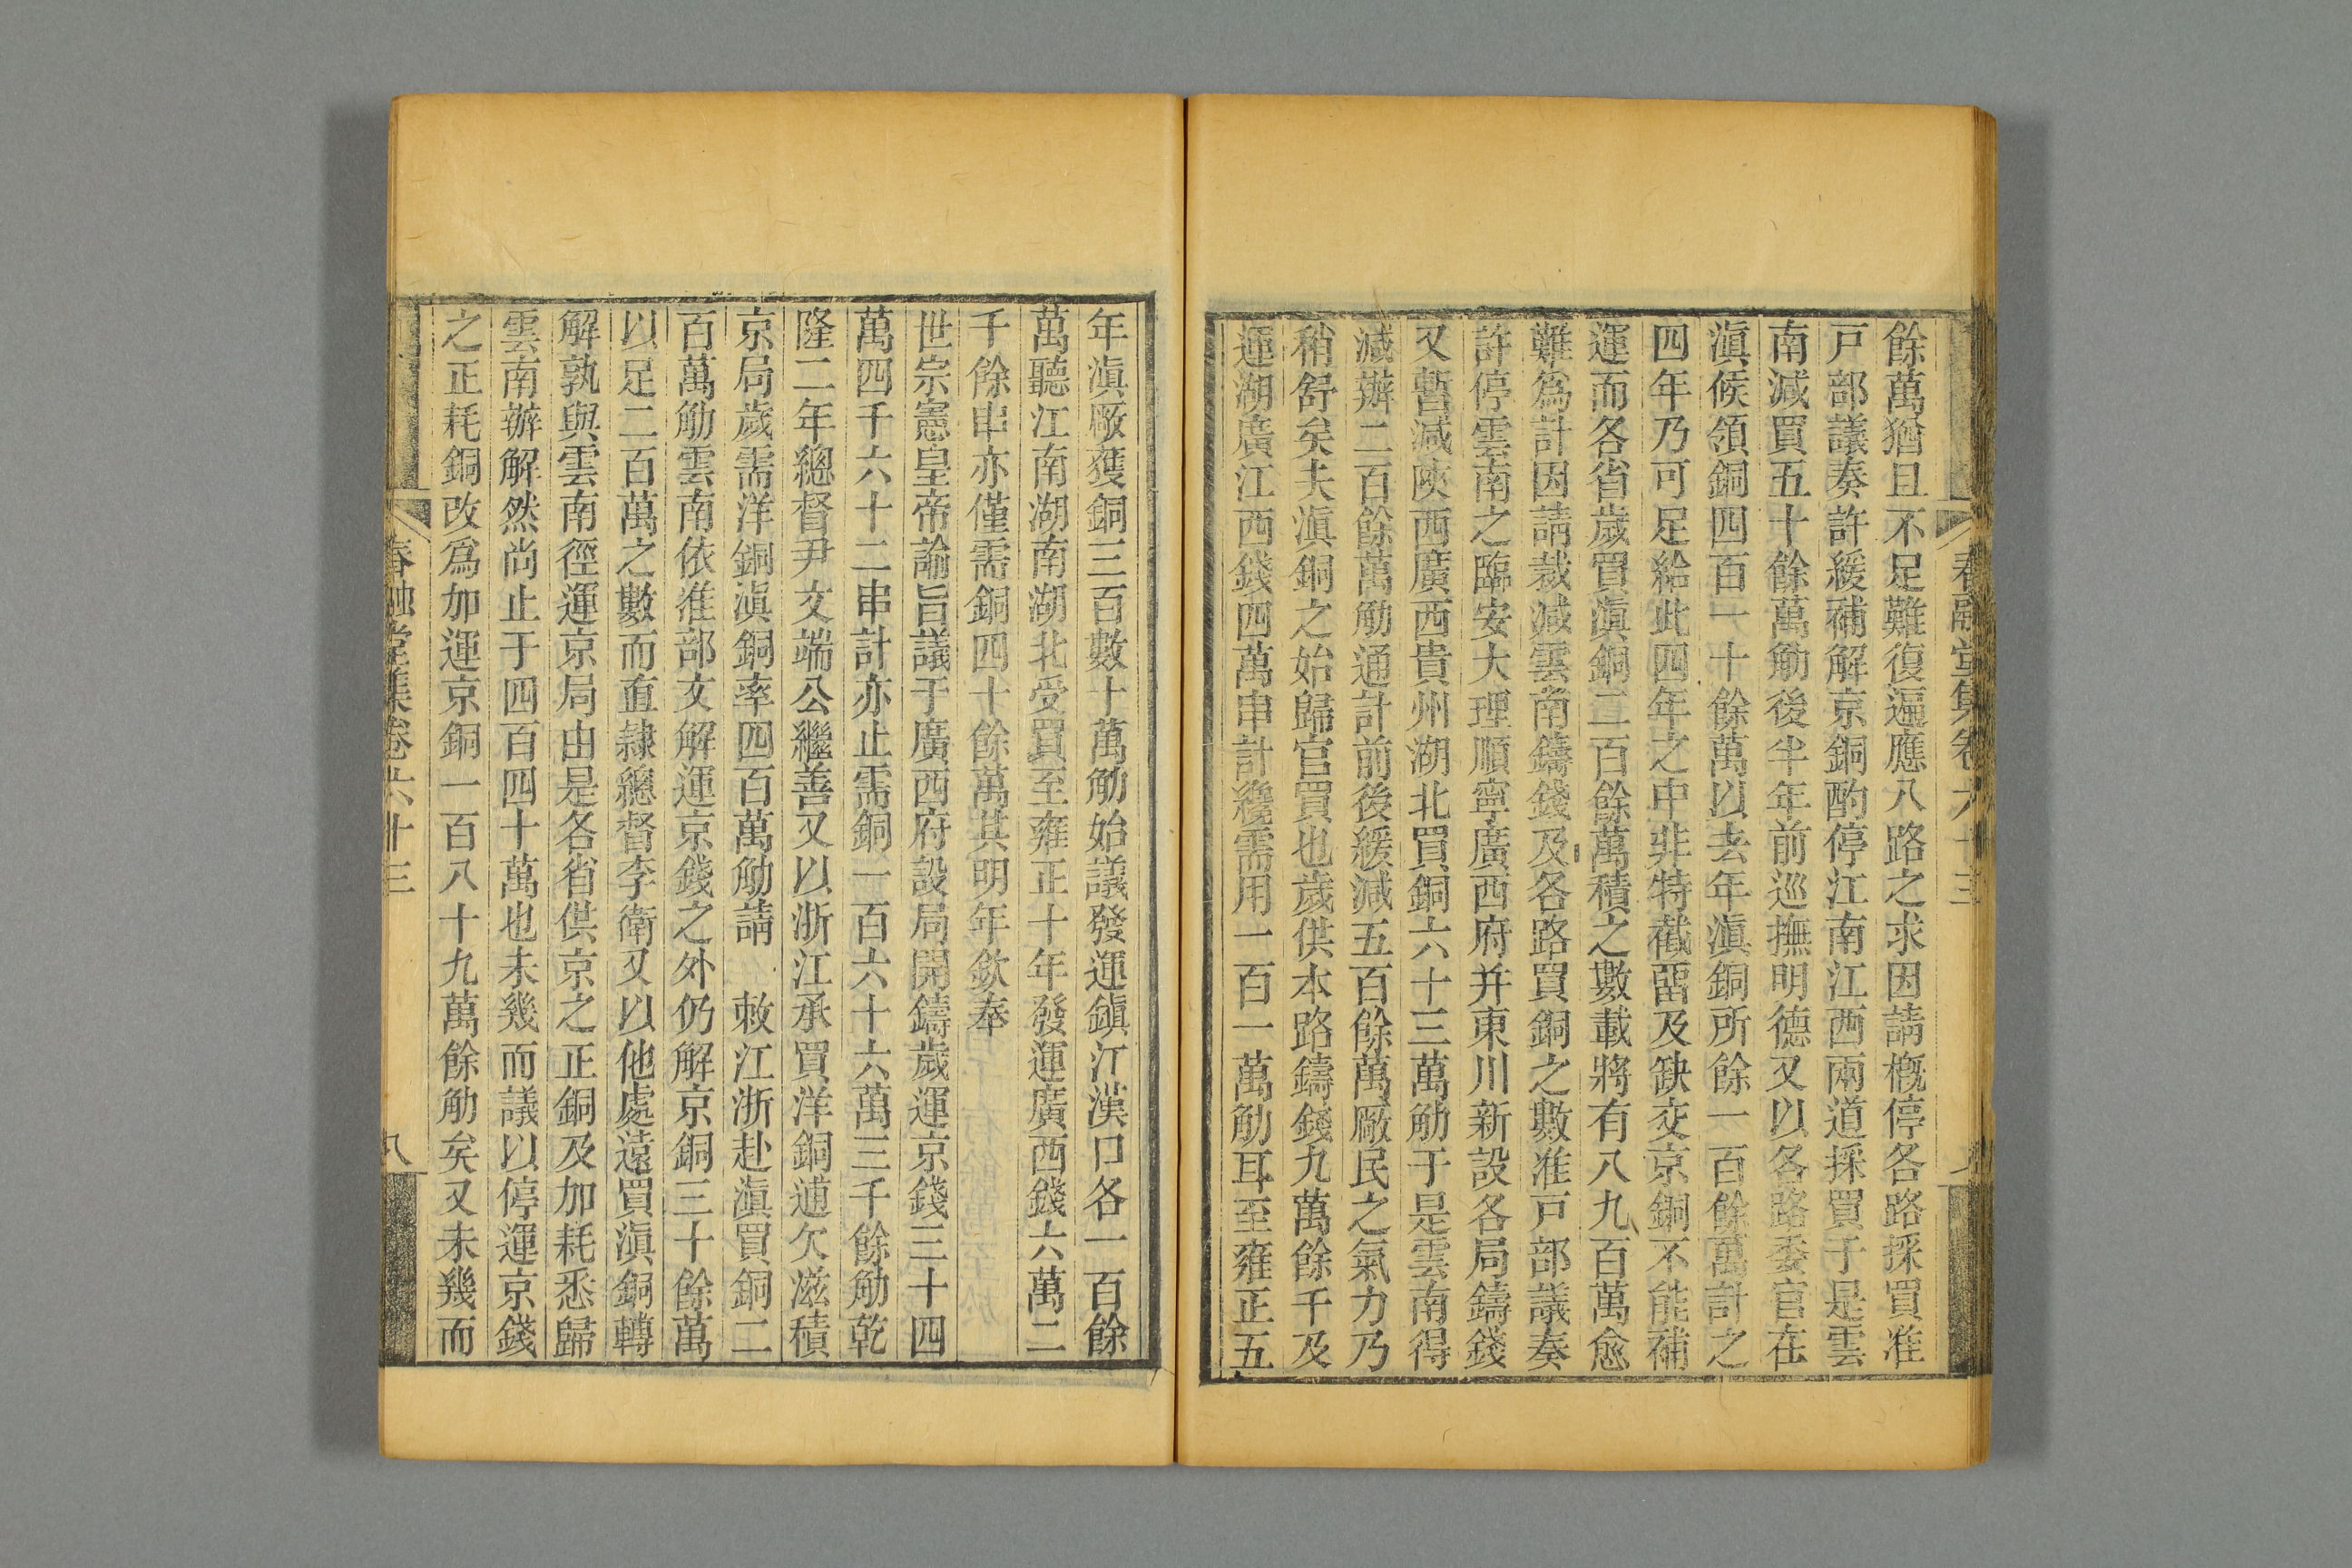 春融堂集卷六十三
餘萬猶且不足難復遍應八路之求因請概停各路採買准
戸部議奏許緩補解京銅酌停江南江西兩道採買于是雲
南減買五十餘萬觔後半年前巡撫明德又以各路委官在
滇候領銅四百一十餘萬以去年滇銅所餘一百餘萬計之
四年乃可足給此四年之中非特截留及缺交京銅不能補
運而各省歲買滇銅二百餘萬積之數載將有八九百萬愈
難爲計因請裁減雲南鑄錢及各路買銅之數准戸部議奏
許停雲南之臨安大理順寧廣西府并東川新設各局鑄錢
又暫減陜西廣西貴州湖北買銅六十三萬觔于是雲南得
減辦二百餘萬觔通計前後緩減五百餘萬廠民之氣力乃
稍舒矣夫滇銅之始歸官買也歲供本路鑄錢九萬餘千及
運湖廣江西錢四萬串計纔需用一百一萬觔耳至雍正五
年滇廠獲銅三百數十萬觔始議發運鎭江漢口各一百餘
萬聽江南湖南湖北受買至雍正十年發運廣西錢六萬二
千餘串亦僅需銅四十餘萬其明年欽奉
世宗憲皇帝諭旨議于廣西府設局開鑄歲運京錢三十四
萬四千六十二串計亦止需銅一百六十六萬三千餘觔乾
隆二年總督尹文端公繼善又以浙江承買洋銅逋欠滋積
京局歲需洋銅滇銅率四百萬觔請　敕江浙赴滇買銅二
百萬觔雲南依准部文解運京錢之外仍解京銅三十餘萬
以足二百萬之數而直隸總督李衛又以他處遠買滇銅轉
解孰與雲南徑運京局由是各省供京之正銅及加耗悉歸
雲南辦解然尚止于四百四十萬也未幾而議以停運京錢
之正耗銅改爲加運京銅一百八十九萬餘觔矣又未幾而
春融堂集卷六十三
八